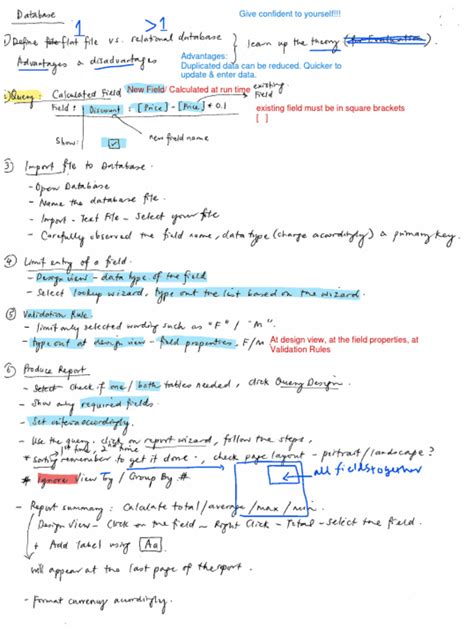 Database
Give confident to yourself!!!
1 >1
1) Define flat file vs. relational database } learn up the theory
Advantages & disadvantages
Advantages:
Duplicated data can be reduced. Quicker to
update & enter data.
2) Query: Calculated Field New Field/ Calculated at run time existing field
Field: Discount: [Price] - [Price] * 0.1
existing field must be in square brackets
[ ]
Show: ☑ new field name
3) Import file to Database.
- Open Database
- Name the database file.
- Import - Text File - Select your file
- Carefully observed the field name, data type (change accordingly) & primary key.
4) Limit entry of a field.
- Design view - data type of the field
- Select lookup wizard, type out the list based on the wizard.
5) Validation Rule.
- limit only selected wording such as "F" / "M".
- type out at design view - field properties. F/M At design view, at the field properties, at
Validation Rules
6) Produce Report
- Select check if one / both tables needed, click Query Design.
- Show only required fields.
- Set criteria accordingly.
- Use the query. click on report wizard, follow the steps.
1st time, 2nd time
* Sorting remember to get it done. , check page layout - portrait / landscape?
* Ignore View by / Group By *
all fields together
- Report summary: Calculate total / average / max / min.
Design View - Click on the field - Right Click - Total - Select the field.
+ Add label using Aa
will appear at the last page of the report.
- Format currency accordingly.